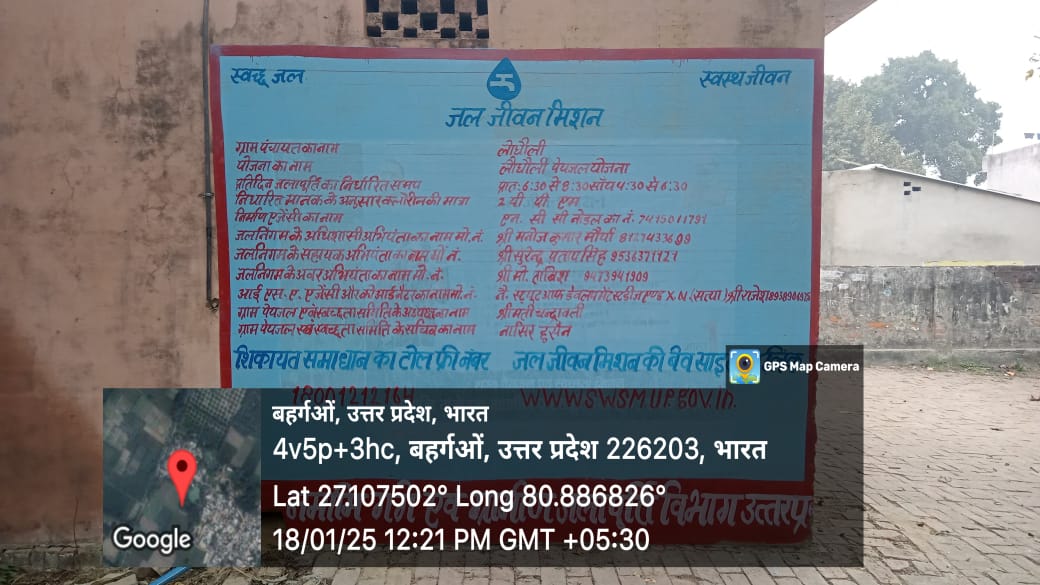 स्वच्छ जल
स्वस्थ जीवन
जल जीवन मिशन
ग्राम पंचायत का नाम लौधौली
योजना का नाम लौधौली पेयजल योजना
प्रतिदिन जलापूर्ति का निर्धारित समय प्रातः 6:30 से 8:30 सांय 4:30 से 6:30
निर्धारित मानक के अनुसार क्लोरीन की मात्रा 2 पी पी एम
निर्माण एजेंसी का नाम एन. सी सी नोडल का नं.
जलनिगम के अधिशासी अभियंता का नाम मो.नं. श्री मनोज कुमार मौर्या
जलनिगम के सहायक अभियंता का नाम मो.नं. श्री सुरेन्द्र प्रताप सिंह
जलनिगम के अवर अभियंता का नाम मो.नं. श्री मो. 9473941909
आई एस. ए. एजेंसी और कोआर्डिनेटर का नाम मो.नं. (सत्या) श्री राजेश
ग्राम पेयजल एवं स्वच्छता समिति के अध्यक्ष का नाम श्रीमती चन्द्रावती
ग्राम पेयजल एवं स्वच्छता समिति के सचिव का नाम नासिर हुसैन
शिकायत समाधान का टोल फ्री नंबर जल जीवन मिशन की वेव साइट
18001212164 WWW.SWSM.UP.GOV.in.
नमामि गंगे एवं ग्रामीण जलापूर्ति विभाग उत्तरप्र
GPS Map Camera
बहर्गओं, उत्तर प्रदेश, भारत
4v5p+3hc, बहर्गओं, उत्तर प्रदेश 226203, भारत
Lat 27.107502° Long 80.886826°
18/01/25 12:21 PM GMT +05:30
Google